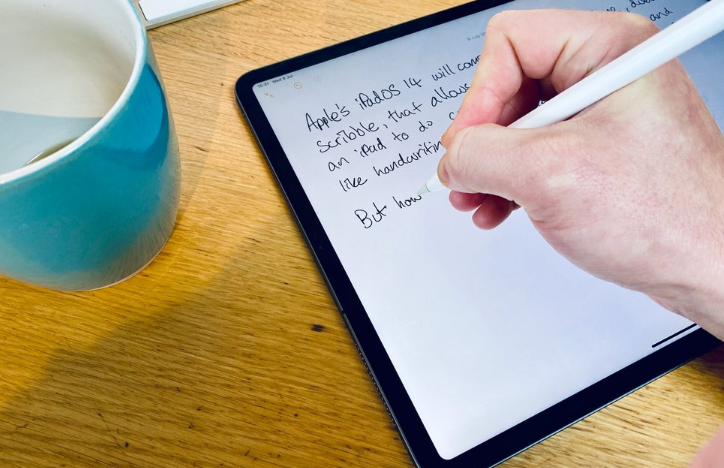 Apple's iPadOS 14 will
scribble, that allows
an iPad to do
like handwriting
But how
and